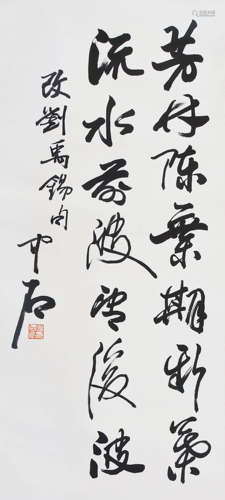 芳林陳葉期新葉
流水前波望後波
改劉禹錫句
中石